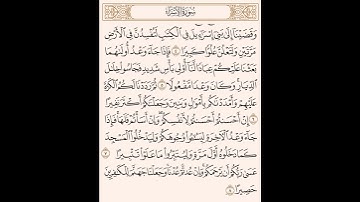 سورة الإسراء
وَقَضَيْنَآ إِلَىٰ بَنِىٓ إِسْرَٰٓءِيلَ فِى ٱلْكِتَٰبِ لَتُفْسِدُنَّ فِى ٱلْأَرْضِ
مَرَّتَيْنِ وَلَتَعْلُنَّ عُلُوًّا كَبِيرًا ٤ فَإِذَا جَآءَ وَعْدُ أُولَىٰهُمَا
بَعَثْنَا عَلَيْكُمْ عِبَادًا لَّنَآ أُو۟لِى بَأْسٍ شَدِيدٍ فَجَاسُوا۟ خِلَٰلَ
ٱلدِّيَارِ وَكَانَ وَعْدًا مَّفْعُولًا ٥ ثُمَّ رَدَدْنَا لَكُمُ ٱلْكَرَّةَ
عَلَيْهِمْ وَأَمْدَدْنَٰكُم بِأَمْوَٰلٍ وَبَنِينَ وَجَعَلْنَٰكُمْ أَكْثَرَ نَفِيرًا
٦ إِنْ أَحْسَنتُمْ أَحْسَنتُمْ لِأَنفُسِكُمْ وَإِنْ أَسَأْتُمْ فَلَهَا فَإِذَا
جَآءَ وَعْدُ ٱلْـَٔاخِرَةِ لِيَسُۥٓـُٔوا۟ وُجُوهَكُمْ وَلِيَدْخُلُوا۟ ٱلْمَسْجِدَ
كَمَا دَخَلُوهُ أَوَّلَ مَرَّةٍ وَلِيُتَبِّرُوا۟ مَا عَلَوْا۟ تَتْبِيرًا ٧
عَسَىٰ رَبُّكُمْ أَن يَرْحَمَكُمْ وَإِنْ عُدتُّمْ عُدْنَا وَجَعَلْنَا جَهَنَّمَ لِلْكَٰفِرِينَ
حَصِيرًا ٨